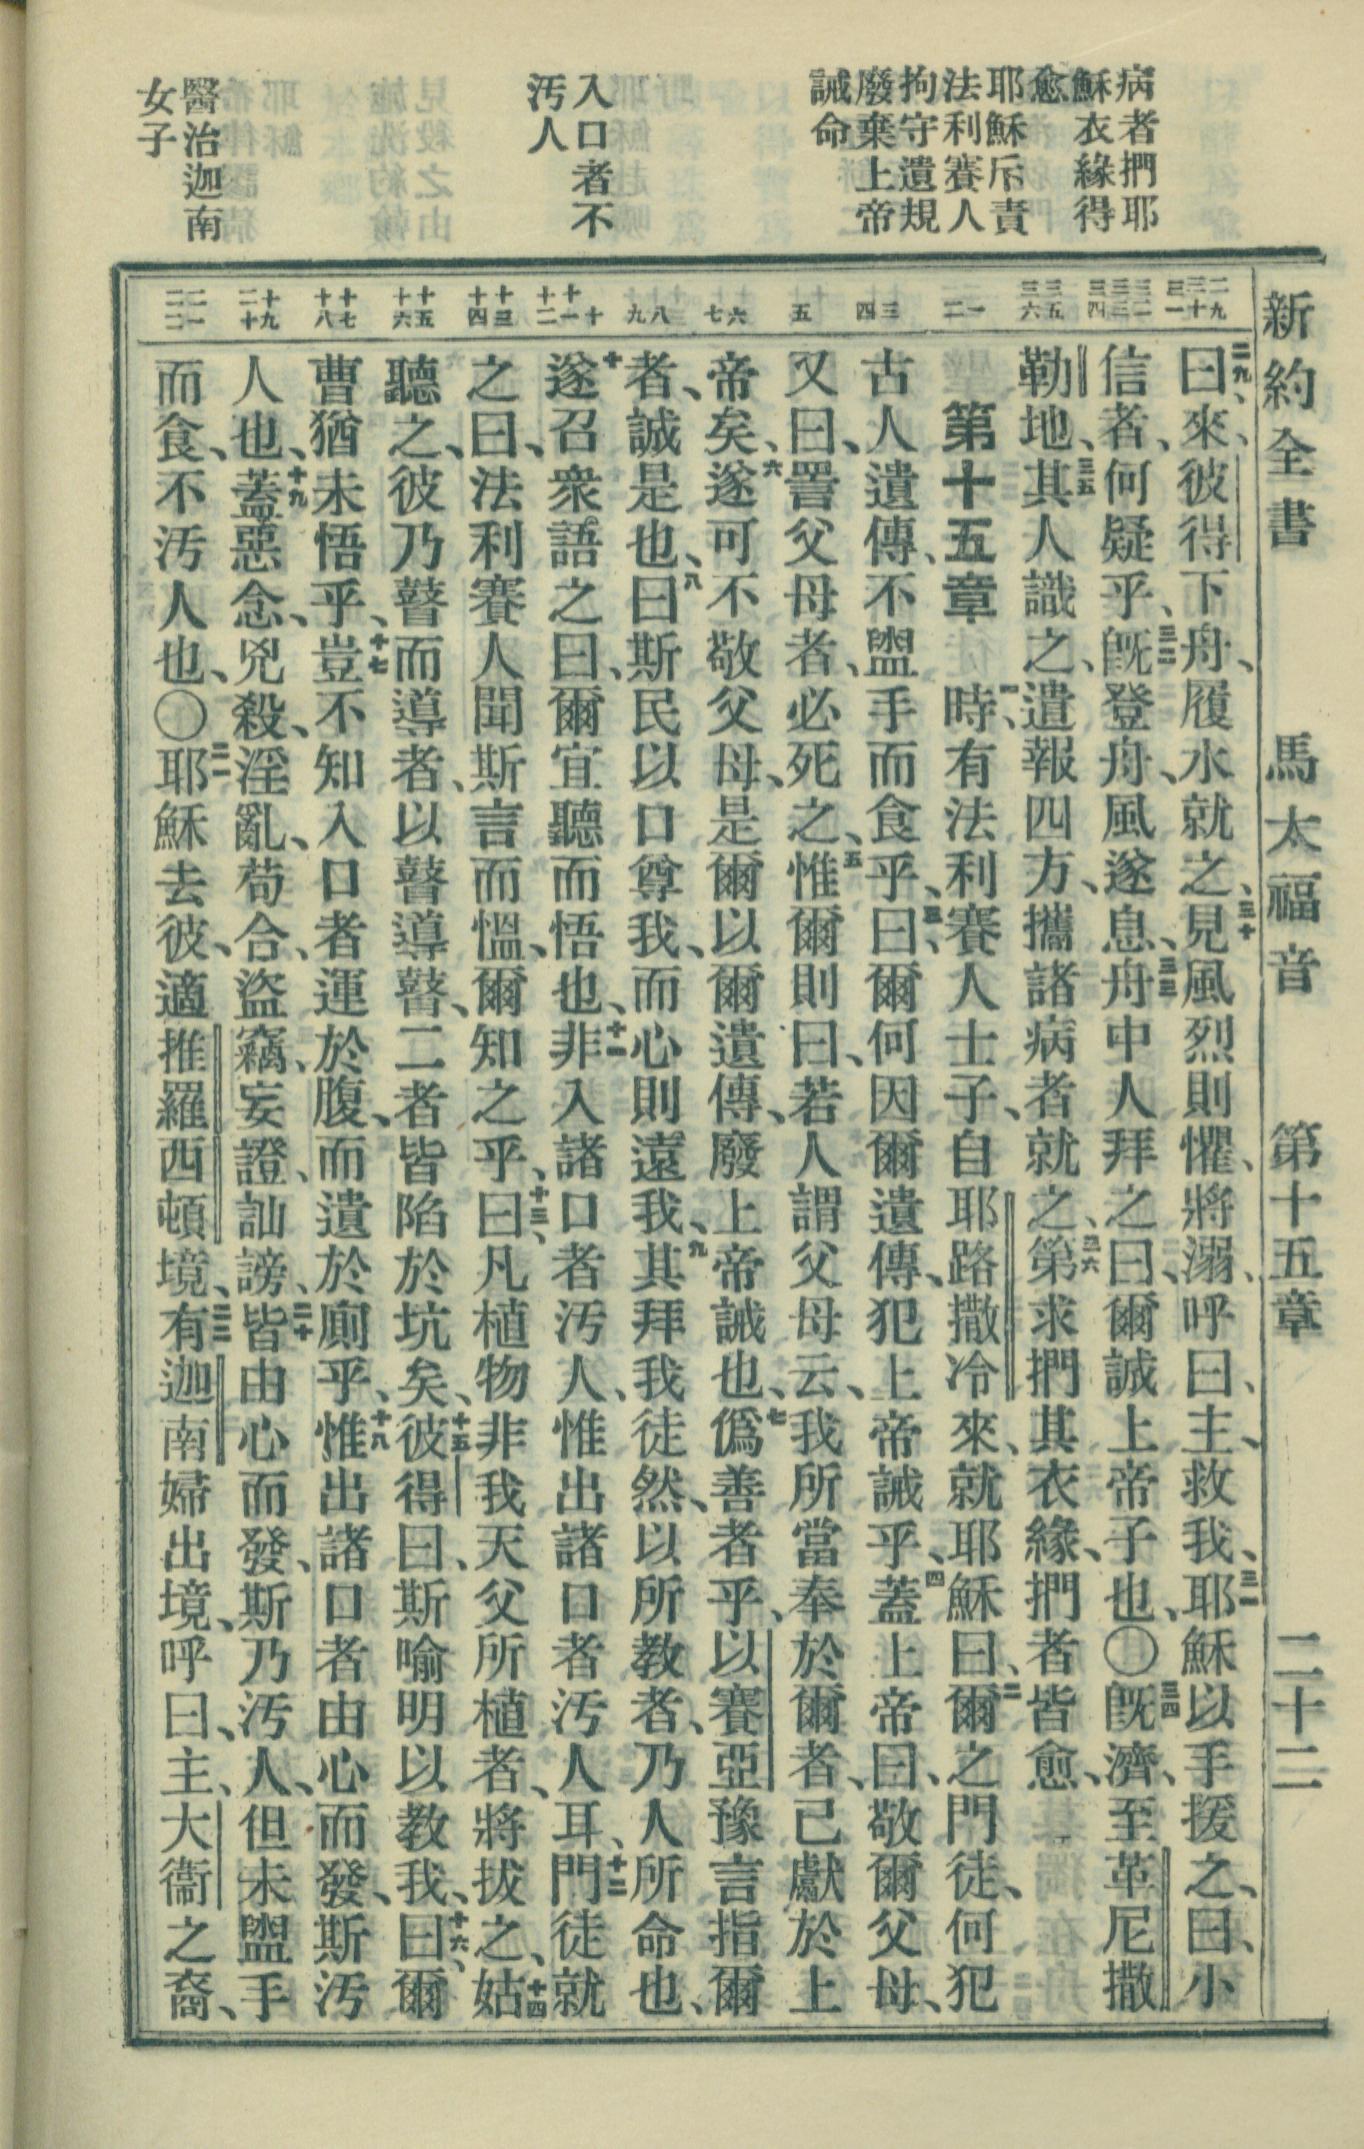 新約全書 馬太福音 第十五章 二十二
病者捫耶
穌衣緣得
愈
耶穌斥責
法利賽人
拘守遺規
廢棄上帝
誡命
入口者不
污人
醫治迦南
女子
二九 三十 三一
三二 三三 三四
三五 三六
一 二
三 四
五
六 七
八 九
十 十一 十二
十三 十四
十五 十六
十七 十八
十九 二十
二一 二二
二九、曰來、彼得下舟、履水就之、三十見風烈則懼、將溺、呼曰、主、救我、三一耶穌以手援之、曰、小
信者、何疑乎、三二旣登舟、風遂息、三三舟中人拜之曰、爾誠上帝子也、〇三四旣濟、至革尼撒
勒地、三五其人識之、遣報四方、攜諸病者就之、三六第求捫其衣緣、捫者皆愈、
第十五章 一、時有法利賽人士子、自耶路撒冷來、就耶穌曰、二爾之門徒、何犯
古人遺傳、不盥手而食乎、三、曰爾何因爾遺傳、犯上帝誡乎、四蓋上帝曰、敬爾父母、
又曰、詈父母者、必死之、五惟爾則曰、若人謂父母云、我所當奉於爾者、已獻於上
帝矣、六遂可不敬父母、是爾以爾遺傳、廢上帝誡也、七僞善者乎、以賽亞豫言指爾
者、誠是也、八曰斯民以口尊我、而心則遠我、九其拜我徒然、以所教者、乃人所命也、
十遂召衆語之曰、爾宜聽而悟也、十一非入諸口者污人、惟出諸口者污人耳、十二門徒就
之曰、法利賽人聞斯言而慍、爾知之乎、十三、曰凡植物非我天父所植者、將拔之、十四姑
聽之、彼乃瞽而導者、以瞽導瞽、二者皆陷於坑矣、十五彼得曰、斯喻明以教我、十六、曰爾
曹猶未悟乎、十七豈不知入口者運於腹、而遺於廁乎、十八惟出諸口者由心而發、斯污
人也、十九蓋惡念、兇殺、淫亂、苟合、盜竊、妄證、訕謗、二十皆由心而發、斯乃污人、但未盥手
而食、不污人也、〇二一耶穌去彼、適推羅西頓境、二二有迦南婦出境、呼曰、主、大衞之裔、